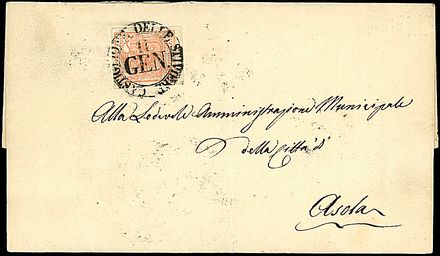 CASTIGLIONE DELLE STIVIERE
11
GEN
Alla Lodevole Amministrazione Municipale
della Città d'
Asola